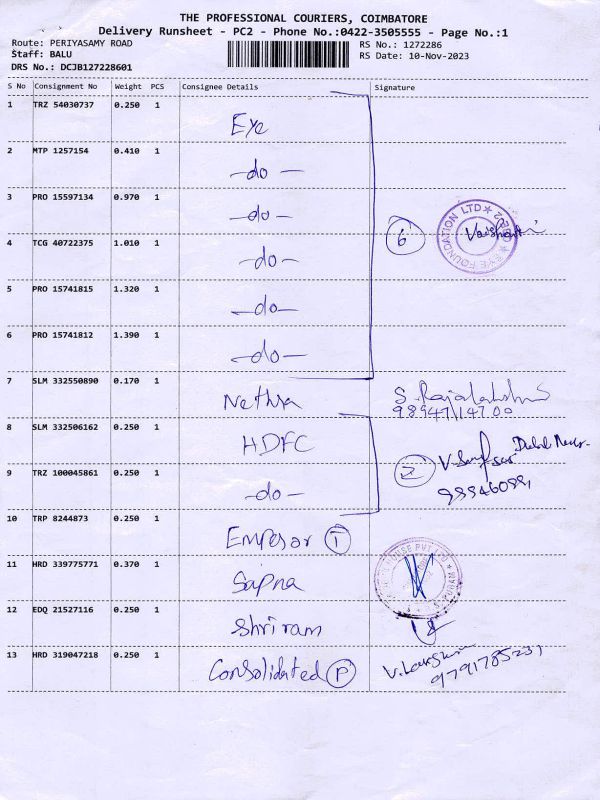 THE PROFESSIONAL COURIERS, COIMBATORE
Delivery Runsheet - PC2 - Phone No.:0422-3505555 - Page No.:1
Route: PERIYASAMY ROAD RS No.: 1272286
Staff: BALU RS Date: 10-Nov-2023
DRS No.: DCJB127228601
S No Consignment No Weight PCS Consignee Details Signature
1 TRZ 54030737 0.250 1 Eye
2 MTP 1257154 0.410 1 -do-
3 PRO 15597134 0.970 1 -do-
6 EYE FOUNDATION LTD
4 TCG 40722375 1.010 1 -do-
5 PRO 15741815 1.320 1 -do-
6 PRO 15741812 1.390 1 -do-
7 SLM 332550890 0.170 1 Nethra S. Rajalakshmi
98947114700
8 SLM 332506162 0.250 1 HDFC
2
9 TRZ 100045861 0.250 1 -do-
10 TRP 8244873 0.250 1 Emperor T
11 HRD 339775771 0.370 1 Sapna
12 EDQ 21527116 0.250 1 Shriram
13 HRD 319047218 0.250 1 Consolidated P V. Lakshmi
9791785231